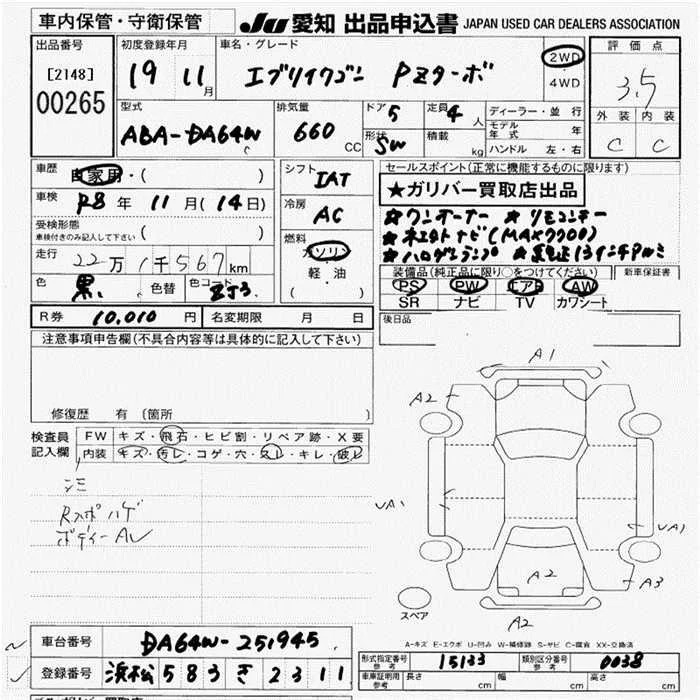 車内保管・守衛保管 JU 愛知 出品申込書 JAPAN USED CAR DEALERS ASSOCIATION
出品番号 [2148] 00265
初度登録年月 19 11月
車名・グレード エブリイワゴン PZターボ
2WD・4WD
評価点 3.5
外装 C 内装 C
型式 ABA-DA64W
排気量 660 CC
ドア 5 形状 SW
定員 4人 積載 kg
ディーラー・並行
モデル年式 年
ハンドル 左・右
車歴 自家用・( )
車検 R8年 11月(14日)
受検形態 車検付きのみ記入して下さい ( )
走行 22万1千567km
色 黒 色替 色コード ZJ3
シフト IAT
冷房 AC
燃料 ガソリン 軽・油 ( )
セールスポイント(正常に機能するものに限ります)
★ガリバー買取店出品
★ワンオーナー ★リモコンキー
★ネエトナビ(MAX7700)
★ハロゲンランプ ★純正13インチアルミ
装備品(純正品に限り○をつけてください) 新車保証書
PS PW エアB AW
SR ナビ TV カワシート
後日品
R券 10,010円 名変期限 月 日
注意事項申告欄(不具合内容等は具体的に記入して下さい)
修復歴 有 [箇所 ]
検査員記入欄
FW キズ・飛石・ヒビ割・リペア跡・X要
内装 キズ・汚レ・コゲ・穴・スレ・キレ・破レ
シミ
Rスポハゲ
ボディーAU
A1
A2
UA1
UA1
A2
A3
スペア
A2
A-キズ E-エクボ U-凹み W-補修跡 S-サビ C-腐食 XX-交換済
車台番号 DA64W-251945
登録番号 浜松 583 き 2311
形式指定番号 参考 15133 類別区分番号 参考 0038
車庫証明用 参考 長さ cm 幅 cm 高さ cm